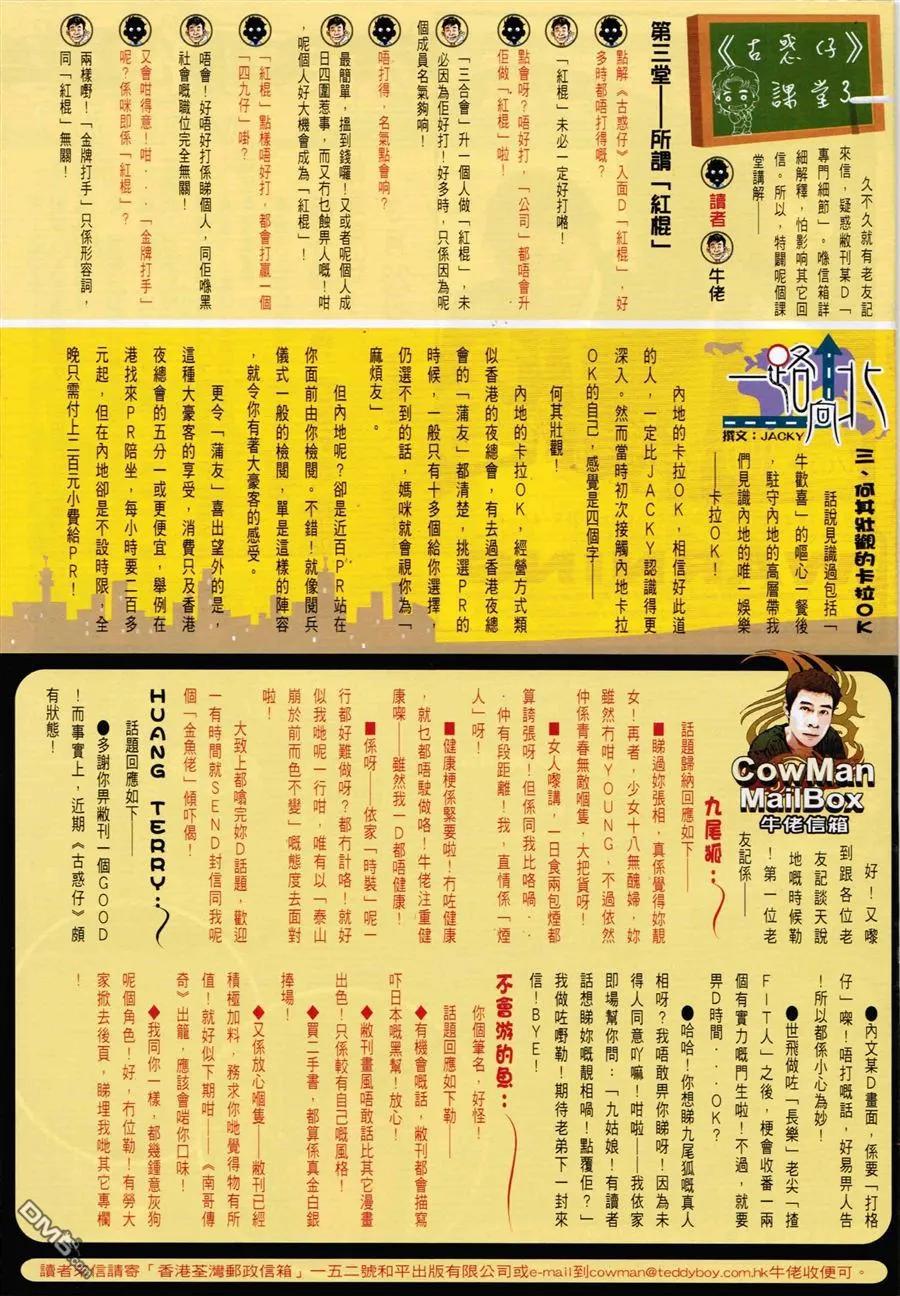 《古惑仔》
課堂3
讀者
牛佬
久不久就有老友記
來信，疑惑敝刊某D「
專門細節」。喺信箱詳
細解釋，怕影响其它回
信。所以，特闢呢個課
堂講解——
第三堂——所謂「紅棍」
點解《古惑仔》入面D「紅棍」，好
多時都唔打得嘅？
「紅棍」未必一定好打嗻！
點會呀？唔好打，「公司」都唔會升
佢做「紅棍」啦！
「三合會」升一個人做「紅棍」，未
必因為佢好打！好多時，只係因為呢
個成員名氣夠响！
唔打得，名氣點會响？
最簡單，搵到錢囉！又或者呢個人成
日四圍惹事，而又冇乜蝕畀人嘅！咁
，呢個人好大機會成為「紅棍」！
「紅棍」點樣唔好打，都會打贏一個
「四九仔」啩？
唔會！好唔好打係睇個人，同佢喺黑
社會嘅職位完全無關！
又會咁得意！咁．．．「金牌打手」
呢？係咪即係「紅棍」？
兩樣嘢！「金牌打手」只係形容詞，
同「紅棍」無關！
一路向北
撰文：JACKY
三、何其壯觀的卡拉OK
話說見識過包括「
牛歡喜」的嘔心一餐後
，駐守內地的高層帶我
們見識內地的唯一娛樂
——卡拉OK！
內地的卡拉OK，相信好此道
的人，一定比JACKY認識得更
深入。然而當時初次接觸內地卡拉
OK的自己，感覺是四個字——
何其壯觀！
內地的卡拉OK，經營方式類
似香港的夜總會，有去過香港夜總
會的「蒲友」都清楚，挑選PR的
時候，一般只有十多個給你選擇，
仍選不到的話，媽咪就會視你為「
麻煩友」。
但內地呢？卻是近百PR站在
你面前由你檢閱。不錯！就像閱兵
儀式一般的檢閱，單是這樣的陣容
，就令你有著大豪客的感受。
更令「蒲友」喜出望外的是，
這種大豪客的享受，消費只及香港
夜總會的五分一或更便宜，舉例在
港找來PR陪坐，每小時要二百多
元起，但在內地卻是不設時限，全
晚只需付上二百元小費給PR！
CowMan
MailBox
牛佬信箱
好！又嚟
到跟各位老
友記談天說
地嘅時候勒
！第一位老
友記係——
九尾狐：
話題歸納回應如下——
■睇過妳張相，真係覺得妳靚
女！再者，少女十八無醜婦，妳
雖然冇咁YOUNG，不過依然
仲係青春無敵嗰隻，大把貨呀！
■女人嚟講，一日食兩包煙都
算誇張呀！但係同我比咯喎．
．仲有段距離！我，直情係「煙
人」呀！
■健康梗係緊要啦！冇咗健康
，就乜都唔駛做咯！牛佬注重健
康㗎——雖然我一D都唔健康！
■係呀——依家「時裝」呢一
行都好難做呀？都冇計咯！就好
似我哋呢一行咁，唯有以「泰山
崩於前而色不變」嘅態度去面對
啦！
大致上都嗡完妳D話題，歡迎
一有時間就SEND封信同我呢
個「金魚佬」傾吓偈！
HUANG TERRY：
話題回應如下——
●多謝你畀敝刊一個GOOD
！而事實上，近期《古惑仔》頗
有狀態！
●內文某D畫面，係要「打格
仔」㗎！唔打嘅話，好易畀人告
！所以都係小心為妙！
●世飛做咗「長樂」老尖「揸
FIT人」之後，梗會收番一兩
個有實力嘅門生啦！不過，就要
畀D時間．．．OK？
●哈哈！你想睇九尾狐嘅真人
相呀？我唔敢畀你睇呀！因為未
得人同意吖嘛！咁啦——我依家
即場幫你問：「九姑娘！有讀者
話想睇妳嘅靚相喎！點覆佢？」
我做咗嘢勒！期待老弟下一封來
信！BYE！
不會游的魚：
你個筆名，好怪！
話題回應如下勒——
◆有機會嘅話，敝刊都會描寫
吓日本嘅黑幫！放心！
◆敝刊畫風唔敢話比其它漫畫
出色！只係較有自己嘅風格！
◆買二手書，都算係真金白銀
捧場！
◆又係放心嗰隻——敝刊已經
積極加料，務求你哋覺得物有所
值！就好似下期咁——《南哥傳
奇》出籠，應該會啱你口味！
◆我同你一樣，都幾鍾意灰狗
呢個角色！好，冇位勒！有勞大
家掀去後頁，睇埋我哋其它專欄
！
讀者來信請寄「香港荃灣郵政信箱」一五二號和平出版有限公司或e-mail到cowman@teddyboy.com.hk牛佬收便可。
DM5.com